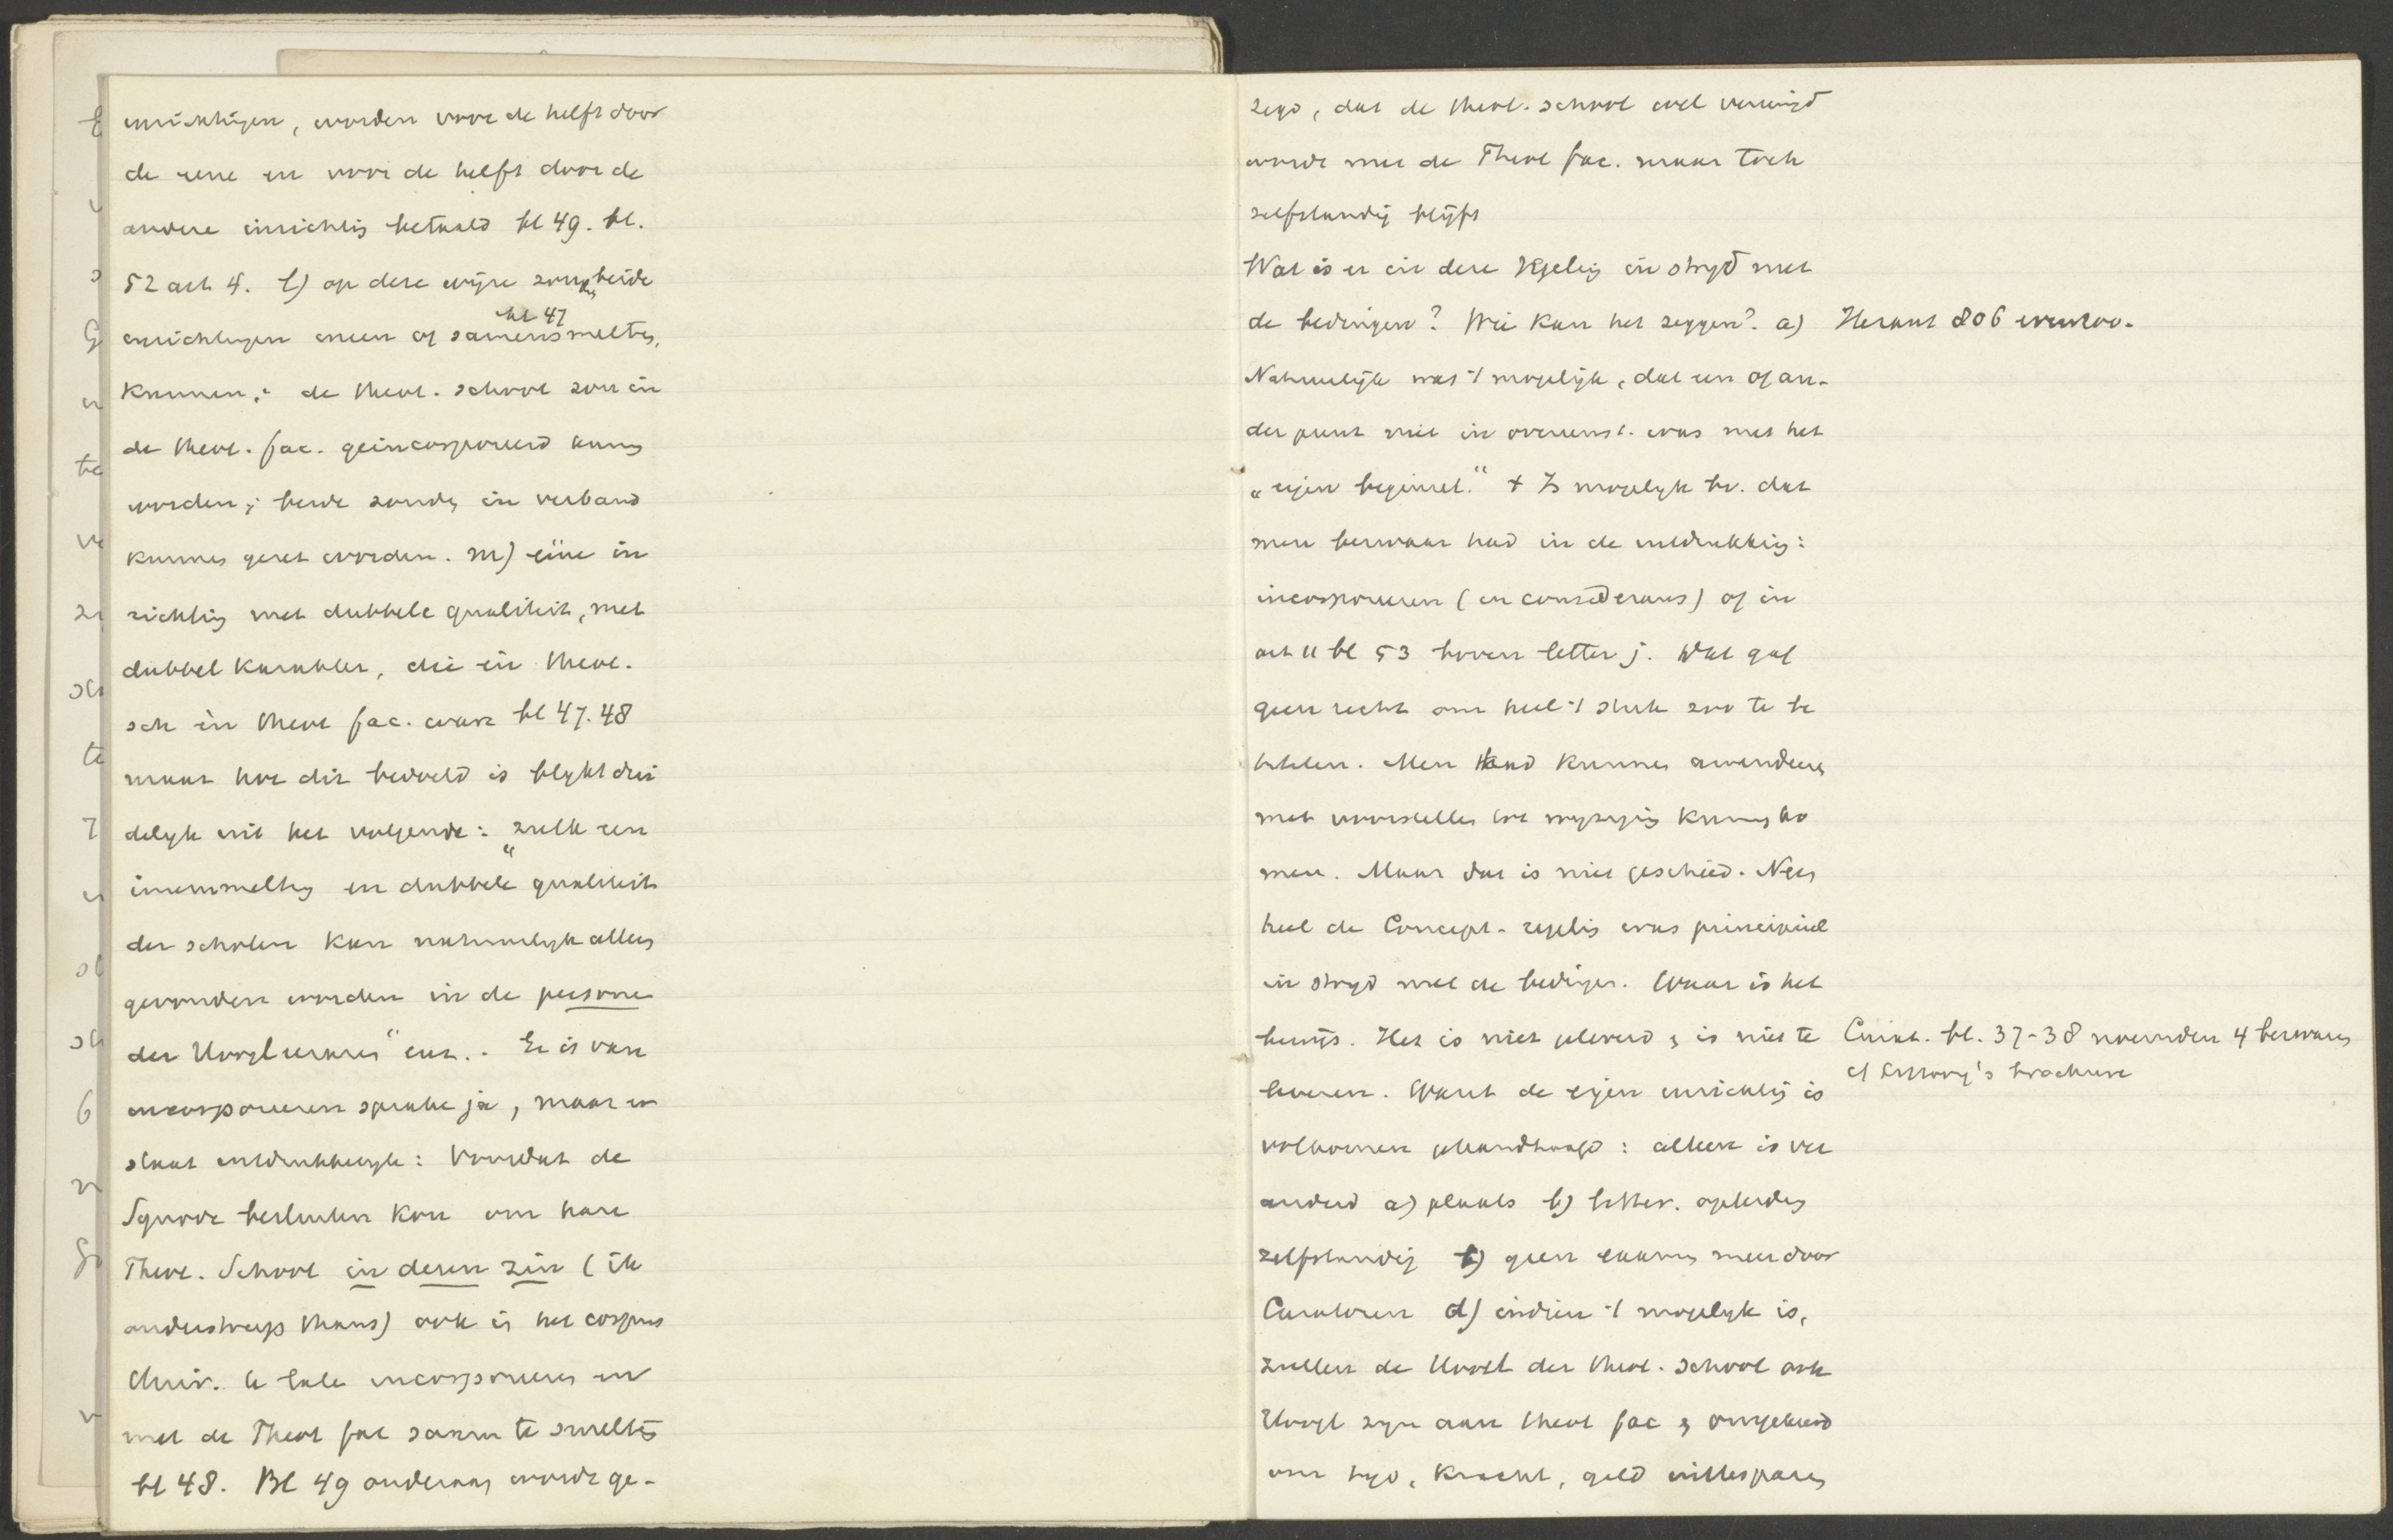 inrichtingen, worden voor de helft door
de eene en voor de helft door de
andere inrichting betaald bl 49. bl.
52 art 4. l) op deze wijze zouden beide
bl 47
inrichtingen ineen of samensmelten
kunnen; de theol. school zou in
de theol. fac. geincorporeerd kunnen
worden; beide zouden in verband
kunnen gezet worden. m) eéne in
richting met dubbele qualiteit, met
dubbel karakter, die èn theol.
sch èn theol fac. ware bl 47. 48
maar hoe dit bedoeld is blykt dui
delyk uit het volgende: „zulk een
ineensmelting en dubbele qualiteit
der scholen kan natuurlyk alleen
gevonden worden in de persone
der Hoogleeraren" enz.. Er is van
incorporeeren sprake ja, maar er
staat uitdrukkelyk: Voordat de
Synode besluiten kon om hare
Theol. School in dezen zin (ik
onderstreep thans) ook in het corpus
te laten incorporeeren en
met de Theol fac samen te smelten
bl 48. Bl 49 onderaan wordt ge-
zegd, dat de theol. school wel vereenigd
wordt met de Theol fac. maar toch
zelfstandig blijft
Wat is er in deze Regeling in stryd met
de bedingen? Wie kan het zeggen? a)
Heraut 806
Natuurlijk was 't mogelijk, dat een of an-
der punt niet in overeenst. was met het
„eigen beginsel." + Is mogelyk bv. dat
men bezwaar had in de uitdrukking:
incorporeeren (in considerans) of in
art 11 bl 53 boven letter j. Dat gaf
geen recht om heel 't stuk zoo te be
titelen. Men had kunnen amendeeren
met voorstellen tot wyziging kunnen ko
men. Maar dat is niet geschied. Neen
heel de Concept-regeling was principieel
in stryd met de bedingen. Waar is het
bewijs. Het is niet geleverd & is niet te
Curat. bl. 37-38 noemden 4 bezwaren
cf brochure
leveren. Want de eigen inrichting is
volkomen gehandhaafd: alleen is ver
anderd a) plaats b) litter. opleiding
zelfstandig c) geen examen meer door
Curatoren d) indien 't mogelyk is,
zullen de Hoogl der theol. school ook
Hoogl zyn aan theol fac & omgekeerd
om tyd, kracht, geld uittesparen